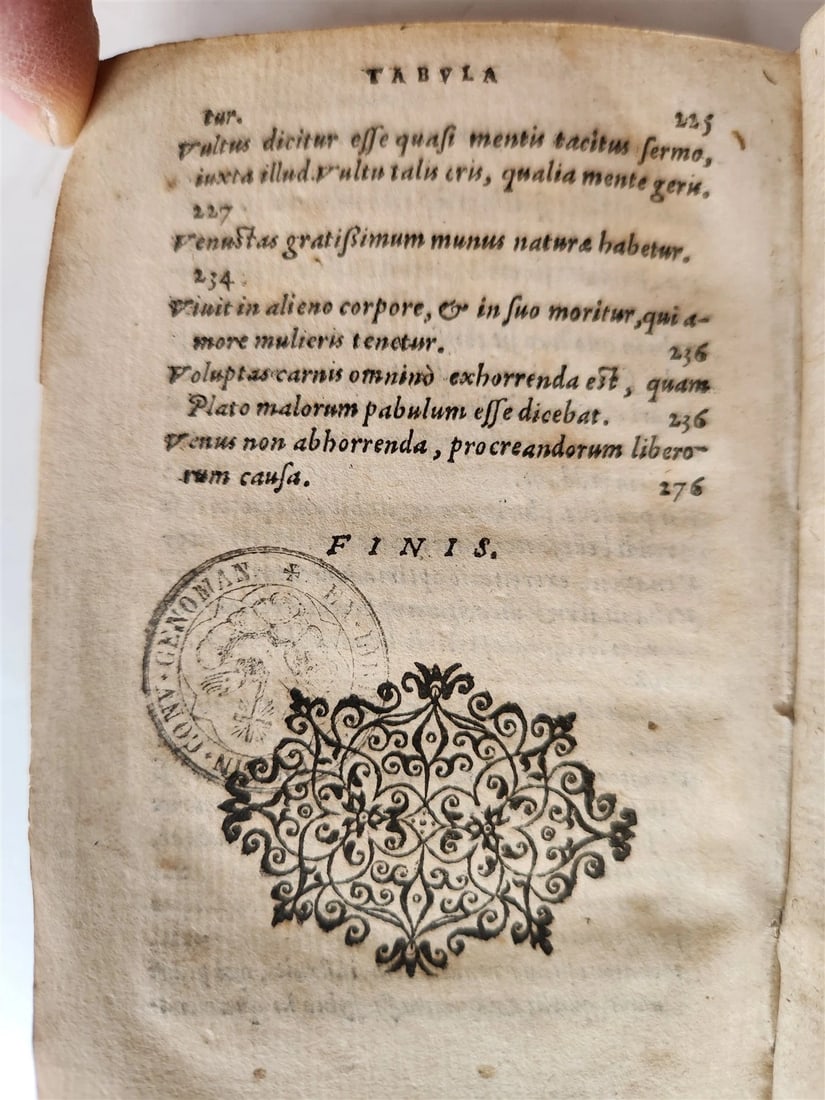 TABVLA
tur. 225
Vultus dicitur eſſe quaſi mentis tacitus ſermo,
iuxta illud. Vultu talis eris, qualia mente geris.
227
Venuſtas gratiſſimum munus naturæ habetur.
234
Viuit in alieno corpore, & in ſuo moritur, qui a-
more mulieris tenetur. 236
Voluptas carnis omninò exhorrenda eſt, quam
Plato malorum pabulum eſſe dicebat. 236
Venus non abhorrenda, procreandorum libero-
rum cauſa. 276
FINIS.
CONV · CENOMAN